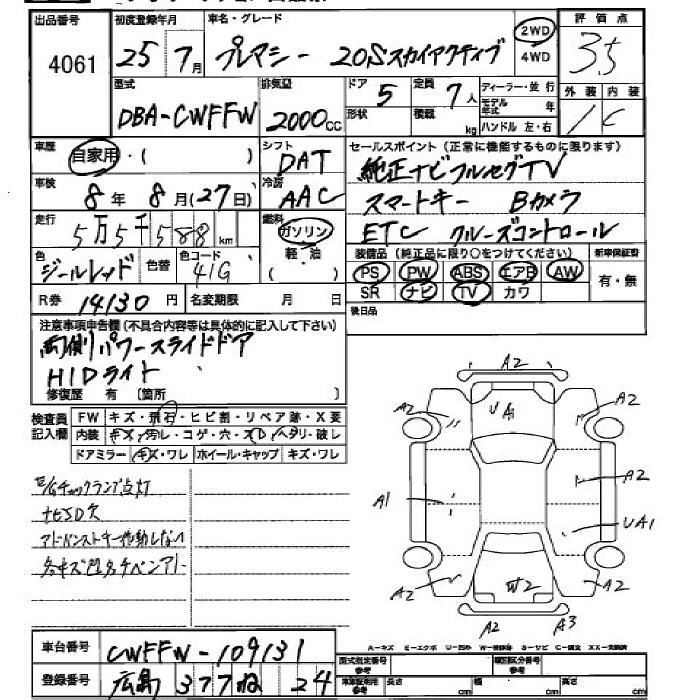 出品番号 初度登録年月 車名・グレード 評価点
4061 25年7月 プレマシー 20Sスカイアクティブ 2WD 4WD 3.5
型式 排気量 ドア 定員 ディーラー・並行 外装 内装
DBA-CWFFW 2000cc 5 7人 モデル年式 年 1 C
形状 積載 kg ハンドル 左・右
車歴 自家用・( ) シフト DAT セールスポイント(正常に機能するものに限ります)
純正ナビフルセグTV
車検 8年8月(27日) 冷房 AAC スマートキー Bカメラ
走行 5万5千588km 燃料 ガソリン 軽・油 ( ) ETC クルーズコントロール
色 ジールレッド 色替 色コード 41G 装備品(純正品に限り○をつけてください) 新車保証書
PS PW ABS エアB AW 有・無
SR ナビ TV カワ
R券 14130円 名変期限 月 日 後日品
注意事項申告欄(不具合内容等は具体的に記入して下さい)
両側パワースライドドア
HIDライト
修復歴 有〔箇所 〕
検査員記入欄 FW キズ・飛石・ヒビ割・リペア跡・X要
内装 キズ・汚レ・コゲ・穴・スレ・ヘタリ・破レ
ドアミラー キズ・ワレ ホイール・キャップ キズ・ワレ
E/Gチェックランプ点灯
ナビSD欠
アドバンストキー作動しない
A2
A2 UA1 A2
A1 A2
UA1
A2 W2 A2
A2 A3
A-キズ E-エクボ U-凹み W-補修跡 S-サビ C-腐食 XX-交換済
車台番号 CWFFW-109131
登録番号 広島 377 ね 24
型式指定番号 参考 類別区分番号 参考
車車証用 参考 長さ cm 幅 cm 高さ cm